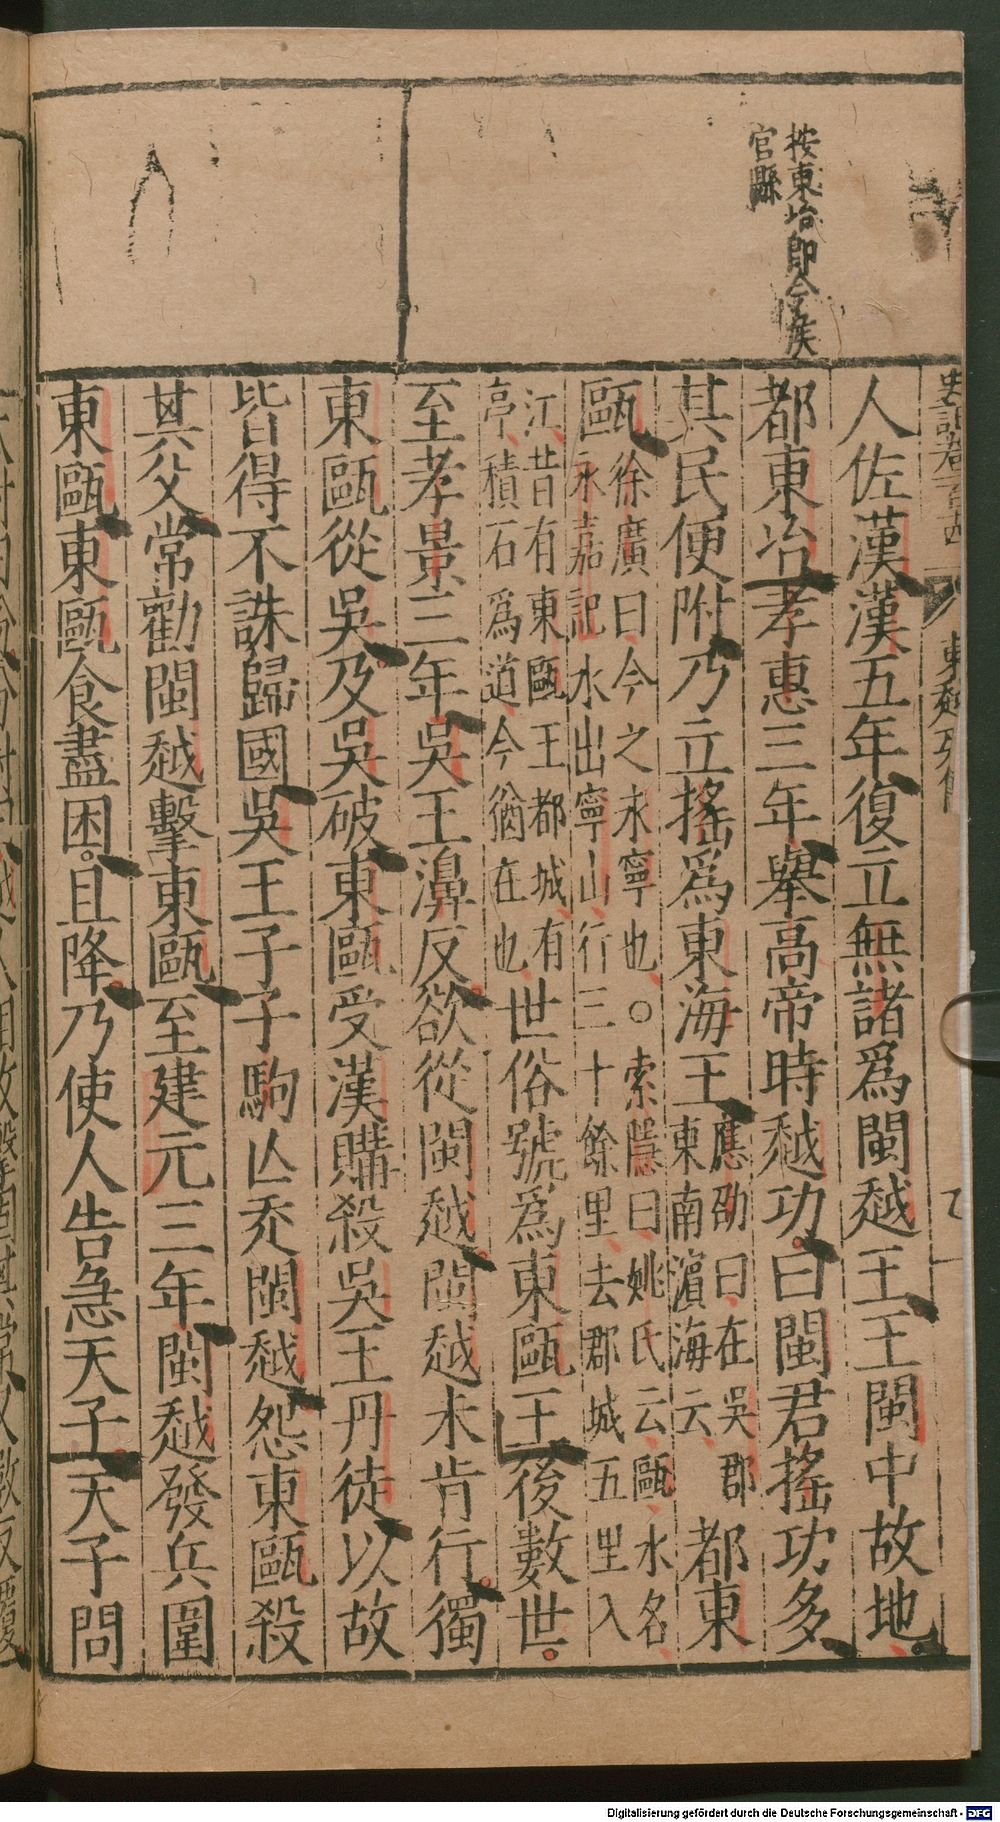 按東冶即今矦
官縣
東越列傳
人佐漢漢五年復立無諸爲閩越王王閩中故地
都東冶孝惠三年舉高帝時越功曰閩君搖功多
其民便附乃立搖爲東海王
應劭曰在吳郡
東南濵海云
都東
甌
徐廣曰今之永寧也○索隱曰姚氏云甌水名
永嘉記水出寧山行三十餘里去郡城五里入
江昔有東甌王都城有
亭積石爲道今猶在也
世俗號爲東甌王後數世
至孝景三年吳王濞反欲從閩越閩越未肯行獨
東甌從吳及吳破東甌受漢購殺吳王丹徒以故
皆得不誅歸國吳王子子駒亾走閩越怨東甌殺
其父常勸閩越擊東甌至建元三年閩越發兵圍
東甌東甌食盡困且降乃使人告急天子天子問
Digitalisierung gefördert durch die Deutsche Forschungsgemeinschaft - DFG